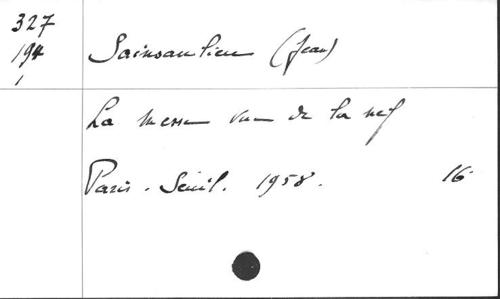 327
194
1
Sainsaulieu (Jean)
La messe vue de la nef
Paris. Seuil. 1958. 16°